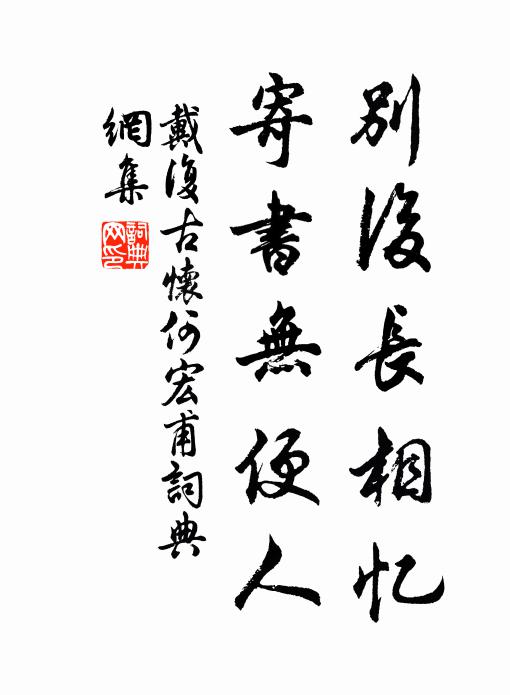 別後長相忆
寄書無便人
戴復古懷何宏甫詞典
網集
詞典网印